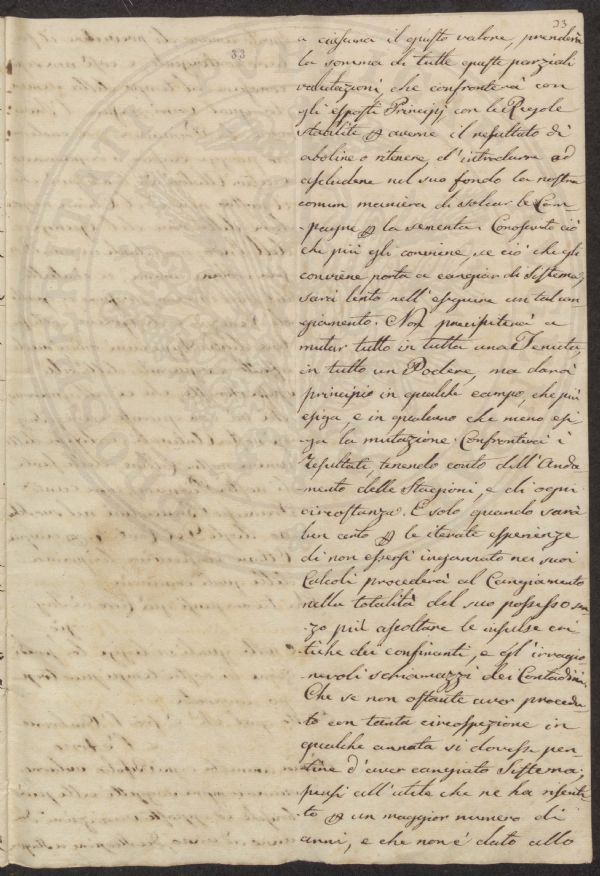 23
33
a ciascuna il giusto valore, prenderà
la somma di tutte queste parziali
valutazioni, che confronterà con
gli esposti Principj con le Regole
stabilite p averne il resultato di
abolire o ritenere, d'introdurre ad
escludere nel suo fondo la nostra
comun maniera di solcar le Cam-
-pagne p la sementa. Conosciuto ciò
che più gli conviene, se ciò che gli
conviene porta a cangiar di Sistema,
sarà lento nell'eseguire un tal can-
giamento. Non precipiterà a
mutar tutto in tutta una Tenuta,
in tutto un Podere, ma darà
principio in qualche campo, che più
esiga, e in qualcuno che meno esi-
ga la mutazione. Confronterà i
resultati, tenendo conto dell'Anda
mento delle Stagioni, e di ogni
circostanza. E solo quando sarà
ben certo p le iterate esperienze
di non essersi ingannato nei suoi
Calcoli procederà al Cangiamento
nella totalità del suo possesso sen
-zo più ascoltare le insulse cri
tiche dei confinanti, e gl'irragio
-nevoli schiamazzi dei Contadini.
Che se non ostante aver procedu
to con tanta circospezione in
qualche annata si dovesse pen-
tire d'aver cangiato Sistema,
pensi all'utile che ne ha risenti
-to p un maggior numero di
anni, e che non è dato allo